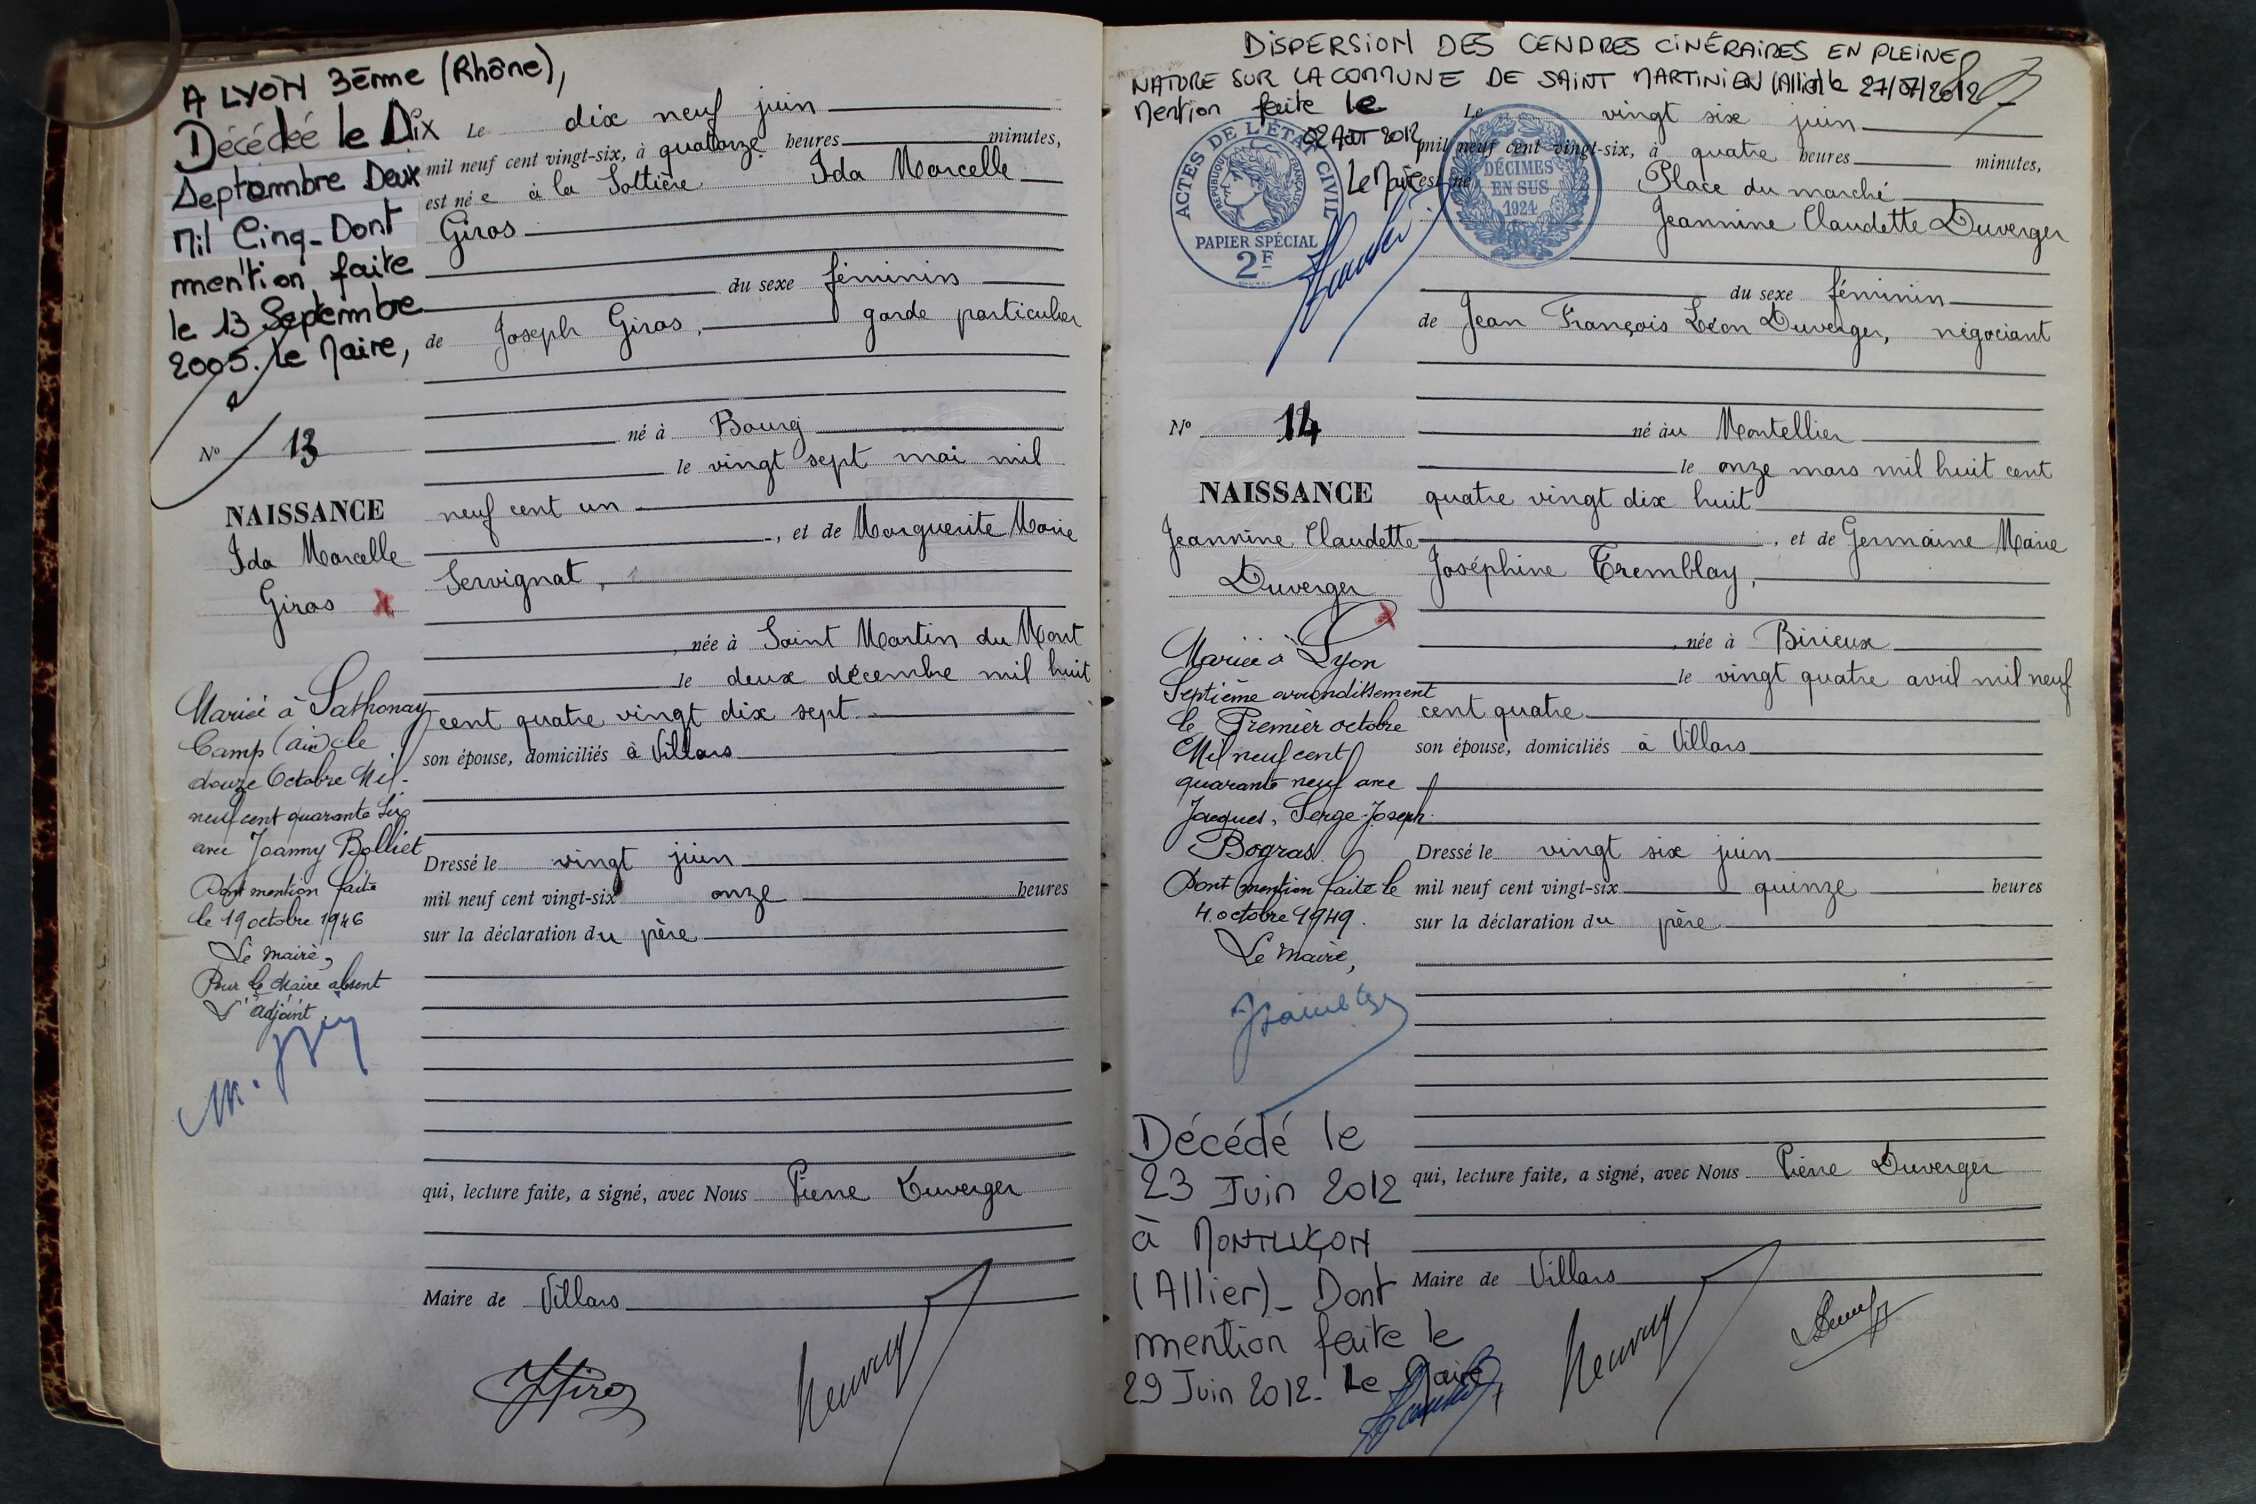 A LYON 3ème (Rhône),
Décédée le Dix
Septembre Deux
Mil Cinq_ Dont
mention faite
le 13 Septembre
2005. Le Maire,
Nº 13
NAISSANCE
Ida Marcelle
Giros X
Mariée à Sathonay
Camp (Ain) le
douze Octobre Mil-
neuf cent quarante six
avec Joanny Bolliet
Dont mention faite
le 19 octobre 1946
Le Maire,
Pour le Maire absent
L'adjoint
Le dix neuf juin
mil neuf cent vingt-six, à quatorze heures minutes,
est née à la Saltière Ida Marcelle
Giros
du sexe féminin
de Joseph Giros, garde particulier
né à Bourg
le vingt sept mai mil
neuf cent un
, et de Marguerite Marie
Servignat,
, née à Saint Martin du Mont
le deux décembre mil huit
cent quatre vingt dix sept
son épouse, domiciliés à Villars
Dressé le vingt juin
mil neuf cent vingt-six onze heures
sur la déclaration du père
qui, lecture faite, a signé, avec Nous Pierre Duverger
Maire de Villars
DISPERSION DES CENDRES CINÉRAIRES EN PLEINE
NATURE SUR LA COMMUNE DE SAINT MARTINIEN (Allier) le 27/07/2012_
Mention faite le
02 AOUT 2012
Le Maire
ACTES DE L'ÉTAT CIVIL
RÉPUBLIQUE FRANÇAISE
PAPIER SPÉCIAL
2F
DÉCIMES
EN SUS
1924
Nº 14
NAISSANCE
Jeannine Claudette
Duverger
X
Mariée à Lyon
Septième arrondissement
le Premier octobre
Mil neuf cent
quarante neuf avec
Jacques, Serge-Joseph
Bogras.
Dont mention faite le
4 octobre 1949.
Le Maire,
Décédé le
23 Juin 2012
à MONTLUÇON
(Allier)_ Dont
mention faite le
29 Juin 2012_ Le Maire,
Le vingt six juin
mil neuf cent vingt-six, à quatre heures minutes,
est né Place du marché
Jeannine Claudette Duverger
du sexe féminin
de Jean François Léon Duverger, négociant
né au Montellier
le onze mars mil huit cent
quatre vingt dix huit
, et de Germaine Marie
Joséphine Tremblay,
, née à Birieux
le vingt quatre avril mil neuf
cent quatre
son épouse, domiciliés à Villars
Dressé le vingt six juin
mil neuf cent vingt-six quinze heures
sur la déclaration du père
qui, lecture faite, a signé, avec Nous Pierre Duverger
Maire de Villars